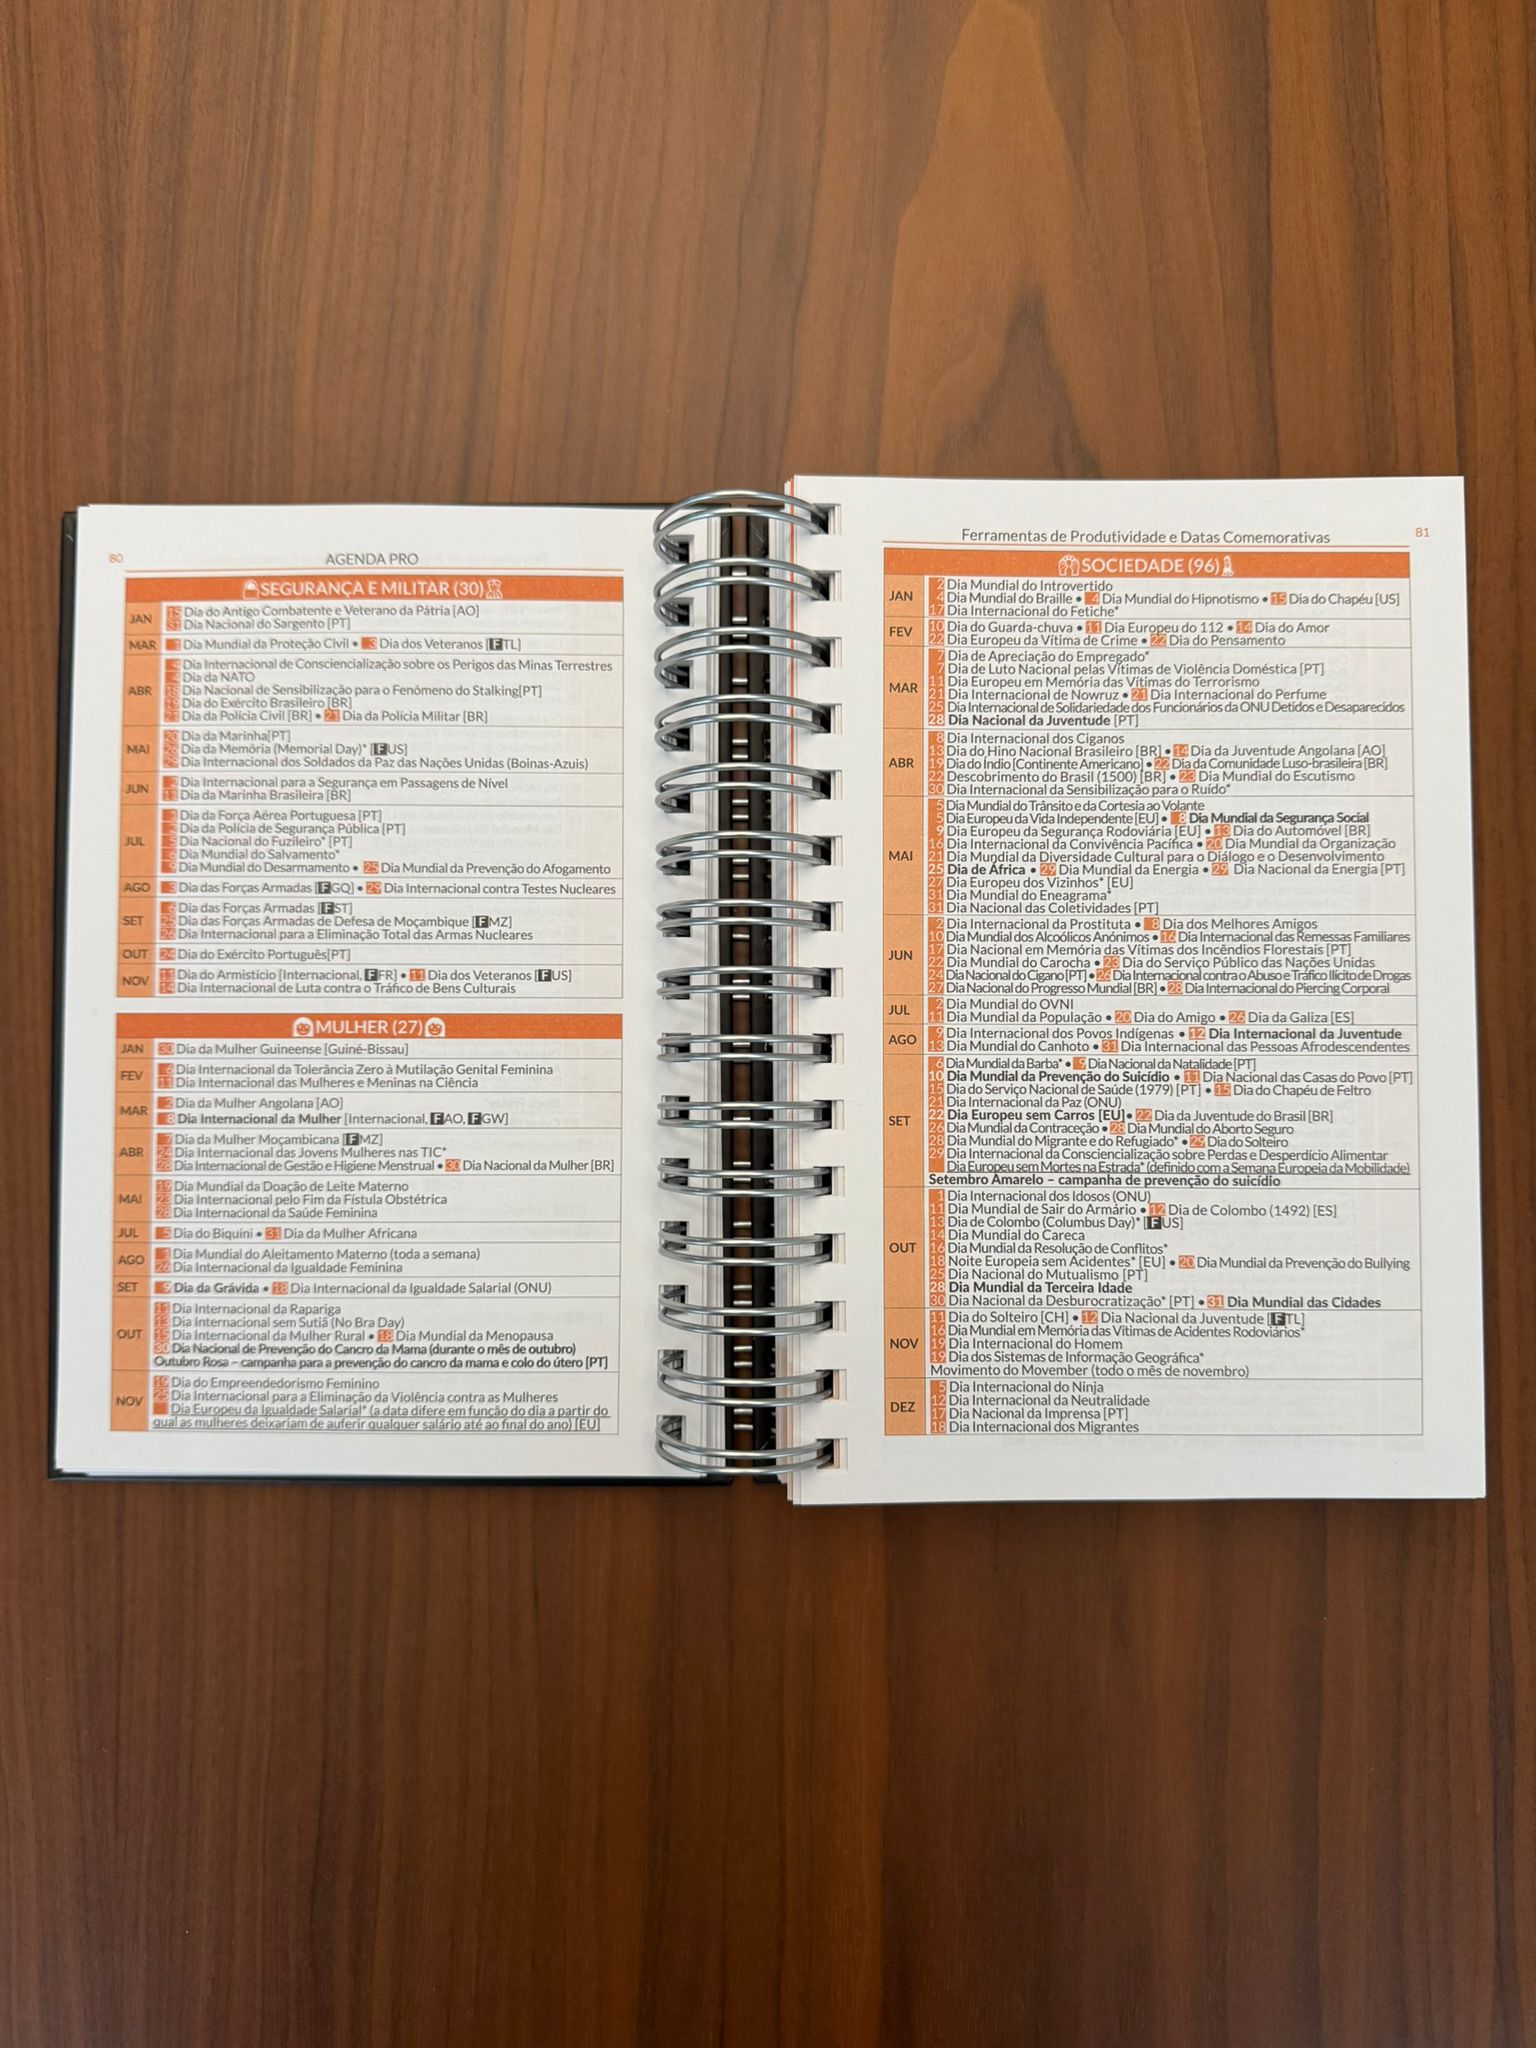 80
AGENDA PRO
SEGURANÇA E MILITAR (30)
JAN
15 Dia do Antigo Combatente e Veterano da Pátria [AO]
31 Dia Nacional do Sargento [PT]
MAR
1 Dia Mundial da Proteção Civil • 3 Dia dos Veteranos [F TL]
ABR
4 Dia Internacional de Consciencialização sobre os Perigos das Minas Terrestres
4 Dia da NATO
18 Dia Nacional de Sensibilização para o Fenómeno do Stalking[PT]
19 Dia do Exército Brasileiro [BR]
21 Dia da Polícia Civil [BR] • 21 Dia da Polícia Militar [BR]
MAI
20 Dia da Marinha[PT]
26 Dia da Memória (Memorial Day)* [F US]
29 Dia Internacional dos Soldados da Paz das Nações Unidas (Boinas-Azuis)
JUN
2 Dia Internacional para a Segurança em Passagens de Nível
11 Dia da Marinha Brasileira [BR]
JUL
1 Dia da Força Aérea Portuguesa [PT]
2 Dia da Polícia de Segurança Pública [PT]
5 Dia Nacional do Fuzileiro* [PT]
6 Dia Mundial do Salvamento*
9 Dia Mundial do Desarmamento • 25 Dia Mundial da Prevenção do Afogamento
AGO
3 Dia das Forças Armadas [F GQ] • 29 Dia Internacional contra Testes Nucleares
SET
6 Dia das Forças Armadas [F ST]
25 Dia das Forças Armadas de Defesa de Moçambique [F MZ]
26 Dia Internacional para a Eliminação Total das Armas Nucleares
OUT
24 Dia do Exército Português[PT]
NOV
11 Dia do Armistício [Internacional, F FR] • 11 Dia dos Veteranos [F US]
14 Dia Internacional de Luta contra o Tráfico de Bens Culturais
MULHER (27)
JAN
30 Dia da Mulher Guineense [Guiné-Bissau]
FEV
6 Dia Internacional da Tolerância Zero à Mutilação Genital Feminina
11 Dia Internacional das Mulheres e Meninas na Ciência
MAR
2 Dia da Mulher Angolana [AO]
8 Dia Internacional da Mulher [Internacional, F AO, F GW]
ABR
7 Dia da Mulher Moçambicana [F MZ]
24 Dia Internacional das Jovens Mulheres nas TIC*
28 Dia Internacional de Gestão e Higiene Menstrual • 30 Dia Nacional da Mulher [BR]
MAI
19 Dia Mundial da Doação de Leite Materno
23 Dia Internacional pelo Fim da Fístula Obstétrica
28 Dia Internacional da Saúde Feminina
JUL
5 Dia do Biquíni • 31 Dia da Mulher Africana
AGO
1 Dia Mundial do Aleitamento Materno (toda a semana)
26 Dia Internacional da Igualdade Feminina
SET
9 Dia da Grávida • 18 Dia Internacional da Igualdade Salarial (ONU)
OUT
11 Dia Internacional da Rapariga
13 Dia Internacional sem Sutiã (No Bra Day)
15 Dia Internacional da Mulher Rural • 18 Dia Mundial da Menopausa
30 Dia Nacional de Prevenção do Cancro da Mama (durante o mês de outubro)
Outubro Rosa – campanha para a prevenção do cancro da mama e colo do útero [PT]
NOV
19 Dia do Empreendedorismo Feminino
25 Dia Internacional para a Eliminação da Violência contra as Mulheres
Dia Europeu da Igualdade Salarial* (a data difere em função do dia a partir do
qual as mulheres deixariam de auferir qualquer salário até ao final do ano) [EU]
Ferramentas de Produtividade e Datas Comemorativas
81
SOCIEDADE (96)
JAN
2 Dia Mundial do Introvertido
4 Dia Mundial do Braille • 4 Dia Mundial do Hipnotismo • 15 Dia do Chapéu [US]
17 Dia Internacional do Fetiche*
FEV
10 Dia do Guarda-chuva • 11 Dia Europeu do 112 • 14 Dia do Amor
22 Dia Europeu da Vítima de Crime • 22 Dia do Pensamento
MAR
7 Dia de Apreciação do Empregado*
7 Dia de Luto Nacional pelas Vítimas de Violência Doméstica [PT]
11 Dia Europeu em Memória das Vítimas do Terrorismo
21 Dia Internacional de Nowruz • 21 Dia Internacional do Perfume
25 Dia Internacional de Solidariedade dos Funcionários da ONU Detidos e Desaparecidos
28 Dia Nacional da Juventude [PT]
ABR
8 Dia Internacional dos Ciganos
13 Dia do Hino Nacional Brasileiro [BR] • 14 Dia da Juventude Angolana [AO]
19 Dia do Índio [Continente Americano] • 22 Dia da Comunidade Luso-brasileira [BR]
22 Descobrimento do Brasil (1500) [BR] • 23 Dia Mundial do Escutismo
30 Dia Internacional da Sensibilização para o Ruído*
MAI
5 Dia Mundial do Trânsito e da Cortesia ao Volante
5 Dia Europeu da Vida Independente [EU] • 8 Dia Mundial da Segurança Social
9 Dia Europeu da Segurança Rodoviária [EU] • 13 Dia do Automóvel [BR]
16 Dia Internacional da Convivência Pacífica • 20 Dia Mundial da Organização
21 Dia Mundial da Diversidade Cultural para o Diálogo e o Desenvolvimento
25 Dia de África • 29 Dia Mundial da Energia • 29 Dia Nacional da Energia [PT]
27 Dia Europeu dos Vizinhos* [EU]
31 Dia Mundial do Eneagrama*
31 Dia Nacional das Coletividades [PT]
JUN
2 Dia Internacional da Prostituta • 8 Dia dos Melhores Amigos
10 Dia Mundial dos Alcoólicos Anónimos • 16 Dia Internacional das Remessas Familiares
17 Dia Nacional em Memória das Vítimas dos Incêndios Florestais [PT]
22 Dia Mundial do Carocha • 23 Dia do Serviço Público das Nações Unidas
24 Dia Nacional do Cigano [PT] • 26 Dia Internacional contra o Abuso e Tráfico Ilícito de Drogas
27 Dia Nacional do Progresso Mundial [BR] • 28 Dia Internacional do Piercing Corporal
JUL
2 Dia Mundial do OVNI
11 Dia Mundial da População • 20 Dia do Amigo • 26 Dia da Galiza [ES]
AGO
9 Dia Internacional dos Povos Indígenas • 12 Dia Internacional da Juventude
13 Dia Mundial do Canhoto • 31 Dia Internacional das Pessoas Afrodescendentes
SET
6 Dia Mundial da Barba* • 9 Dia Nacional da Natalidade [PT]
10 Dia Mundial da Prevenção do Suicídio • 11 Dia Nacional das Casas do Povo [PT]
15 Dia do Serviço Nacional de Saúde (1979) [PT] • 15 Dia do Chapéu de Feltro
21 Dia Internacional da Paz (ONU)
22 Dia Europeu sem Carros [EU] • 22 Dia da Juventude do Brasil [BR]
26 Dia Mundial da Contraceção • 28 Dia Mundial do Aborto Seguro
28 Dia Mundial do Migrante e do Refugiado* • 29 Dia do Solteiro
29 Dia Internacional da Consciencialização sobre Perdas e Desperdício Alimentar
Dia Europeu sem Mortes na Estrada* (definido com a Semana Europeia da Mobilidade)
Setembro Amarelo – campanha de prevenção do suicídio
OUT
1 Dia Internacional dos Idosos (ONU)
11 Dia Mundial de Sair do Armário • 12 Dia de Colombo (1492) [ES]
13 Dia de Colombo (Columbus Day)* [F US]
14 Dia Mundial do Careca
16 Dia Mundial da Resolução de Conflitos*
18 Noite Europeia sem Acidentes* [EU] • 20 Dia Mundial da Prevenção do Bullying
25 Dia Nacional do Mutualismo [PT]
28 Dia Mundial da Terceira Idade
30 Dia Nacional da Desburocratização* [PT] • 31 Dia Mundial das Cidades
NOV
11 Dia do Solteiro [CH] • 12 Dia Nacional da Juventude [F TL]
16 Dia Mundial em Memória das Vítimas de Acidentes Rodoviários*
19 Dia Internacional do Homem
19 Dia dos Sistemas de Informação Geográfica*
Movimento do Movember (todo o mês de novembro)
DEZ
5 Dia Internacional do Ninja
12 Dia Internacional da Neutralidade
17 Dia Nacional da Imprensa [PT]
18 Dia Internacional dos Migrantes